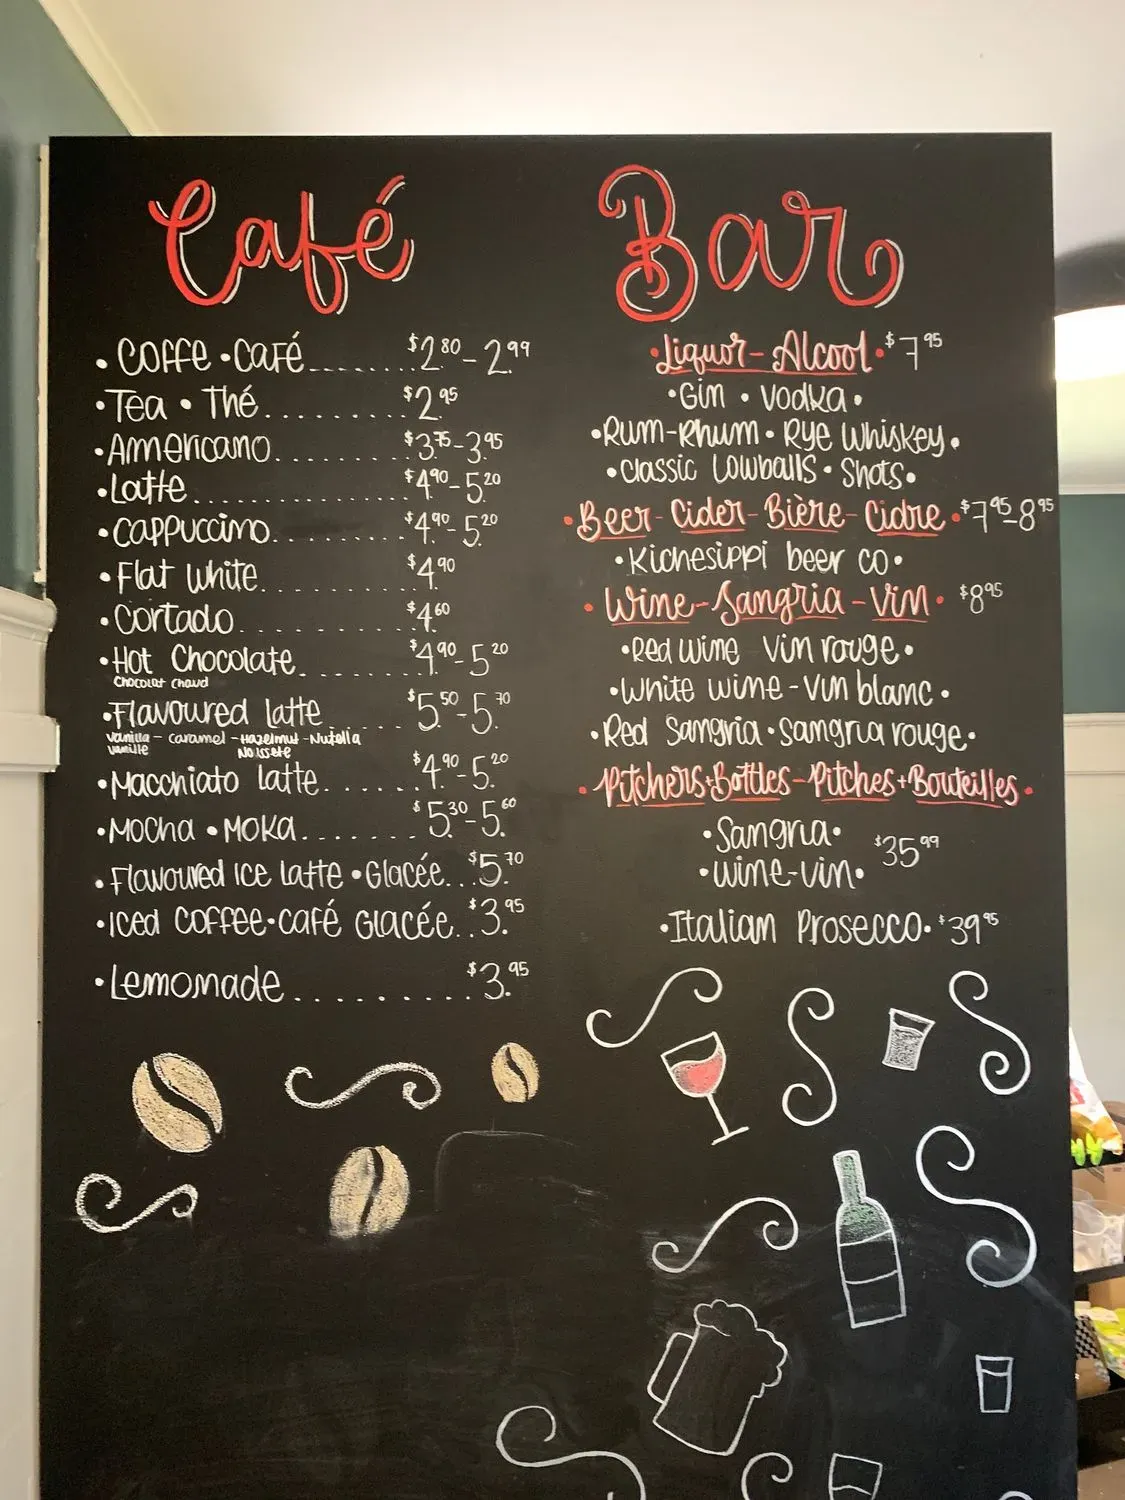 Café
• Coffe • Café........ $2.80 - 2.99
• Tea • Thé.......... $2.95
• Americano.......... $3.75-3.95
• Latte................ $4.90-5.20
• Cappuccino.......... $4.90-5.20
• Flat White........... $4.90
• Cortado............. $4.60
• Hot Chocolate........ $4.90-5.20
Chocolat chaud
• Flavoured latte...... $5.50-5.70
Vanilla - caramel - Hazelnut - Nutella
Vanille Noissete
• Macchiato latte...... $4.90-5.20
• Mocha • Moka........ $5.30-5.60
• Flavoured Ice Latte • Glacée... $5.70
• Iced Coffee • Café Glacée.. $3.95
• Lemonade........... $3.95
Bar
• Liquor - Alcool • $7.95
• Gin • Vodka •
• Rum-Rhum • Rye Whiskey •
• Classic Lowballs • Shots •
• Beer - Cider - Bière - Cidre • $7.95-8.95
• Kichesippi beer co •
• Wine - Sangria - Vin • $8.95
• Red wine Vin rouge •
• White wine - Vin blanc •
• Red Sangria • Sangria rouge •
• Pitchers + Bottles - Pitches + Bouteilles •
• Sangria •
• Wine-vin • $35.99
• Italian Prosecco • $39.95